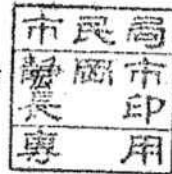 市民局
静岡市
長印
専用